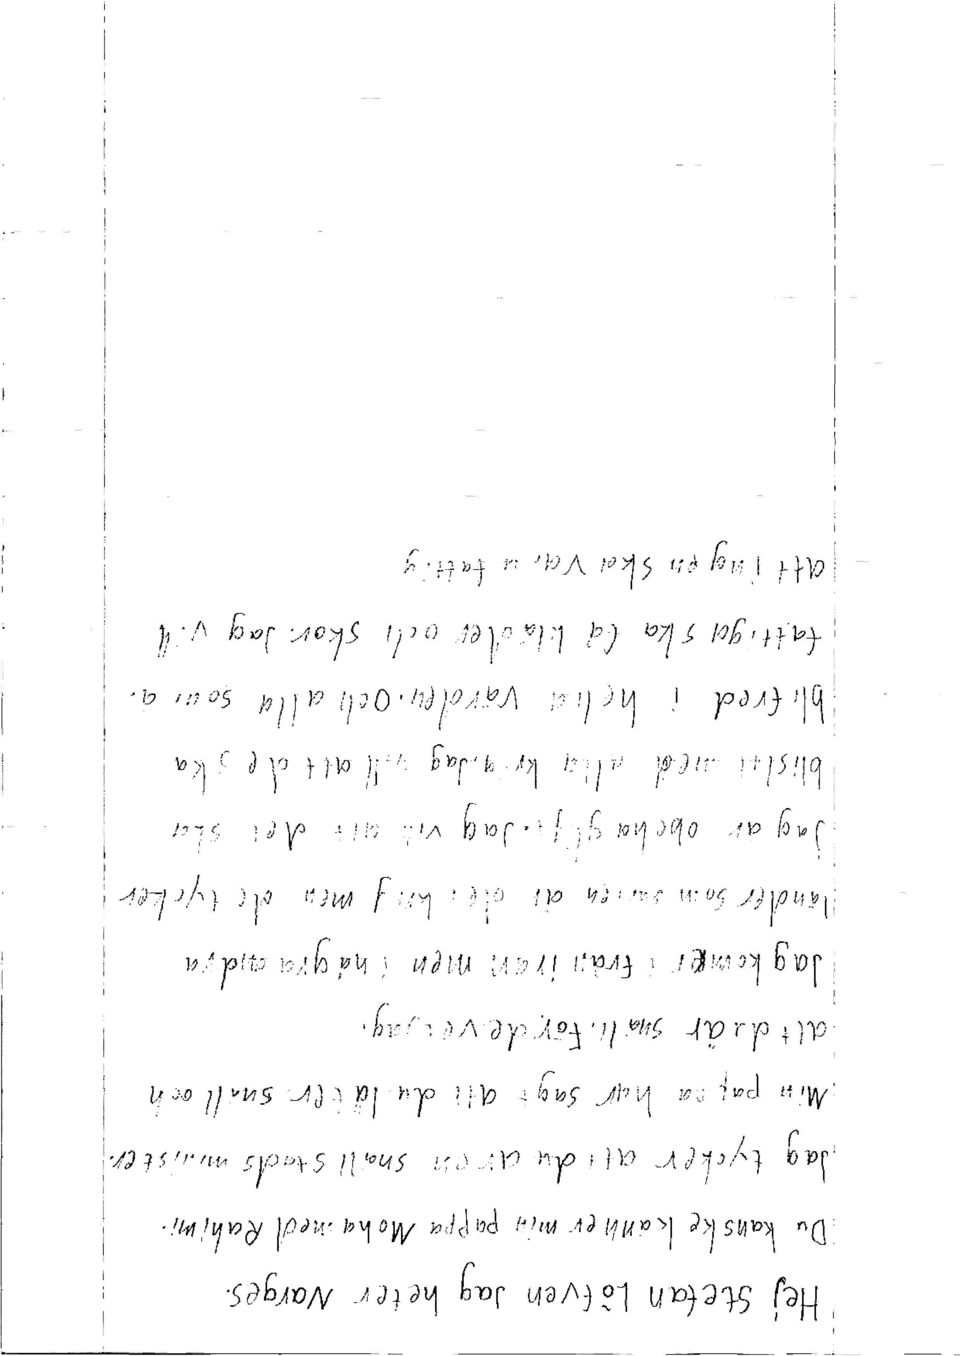 Hej Stefan Löfven Jag heter Narges.
Du kanske känner min pappa Mohammed Rahimi.
Jag tycker att du är en snäll stads minister.
Min pappa har sagt att du låter snäll och
att du är snäll. För de vet jag.
Jag kommer från iran men i några andra
länder som är det krig men de tycker
jag är obehagligt. Jag vill att det ska
bli slut med alla krig. Jag vill att de ska
bli fred i hela värden. Och alla som ä.
fattiga ska få kläder och skor. Jag vill
att ingen ska vara fattig